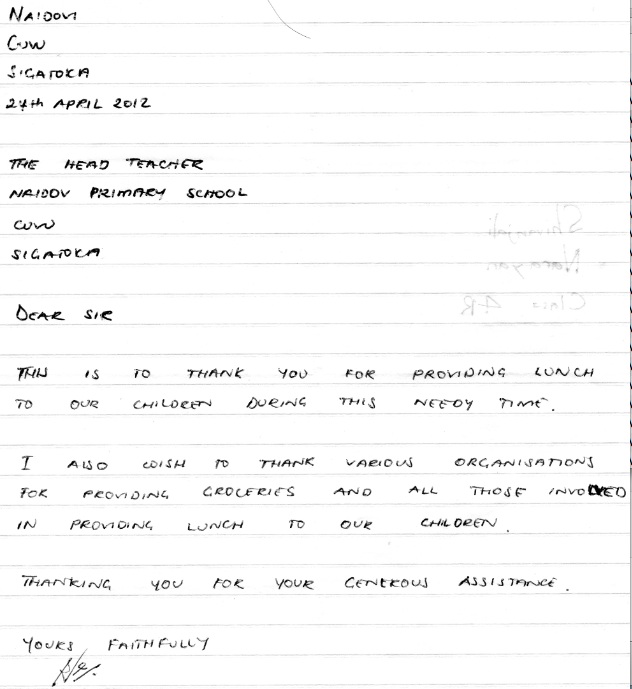 NAIDOVI
CUVU
SIGATOKA
24th APRIL 2012
THE HEAD TEACHER
NAIDOV PRIMARY SCHOOL
CUVU
SIGATOKA
DEAR SIR
THIS IS TO THANK YOU FOR PROVIDING LUNCH
TO OUR CHILDREN DURING THIS NEEDY TIME.
I ALSO WISH TO THANK VARIOUS ORGANISATIONS
FOR PROVIDING GROCERIES AND ALL THOSE INVOLVED
IN PROVIDING LUNCH TO OUR CHILDREN.
THANKING YOU FOR YOUR GENEROUS ASSISTANCE.
YOURS FAITHFULLY
Shivanjali
Narayan
Class 4R